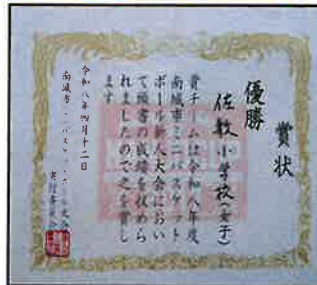 賞状
優勝
佐敷小学校(女子)
貴チームは令和八年度
南城市ミニバスケット
ボール新人大会におい
て頭書の成績を収めら
れましたので之を賞し
ます
令和八年四月十二日
南城市
実行委員会